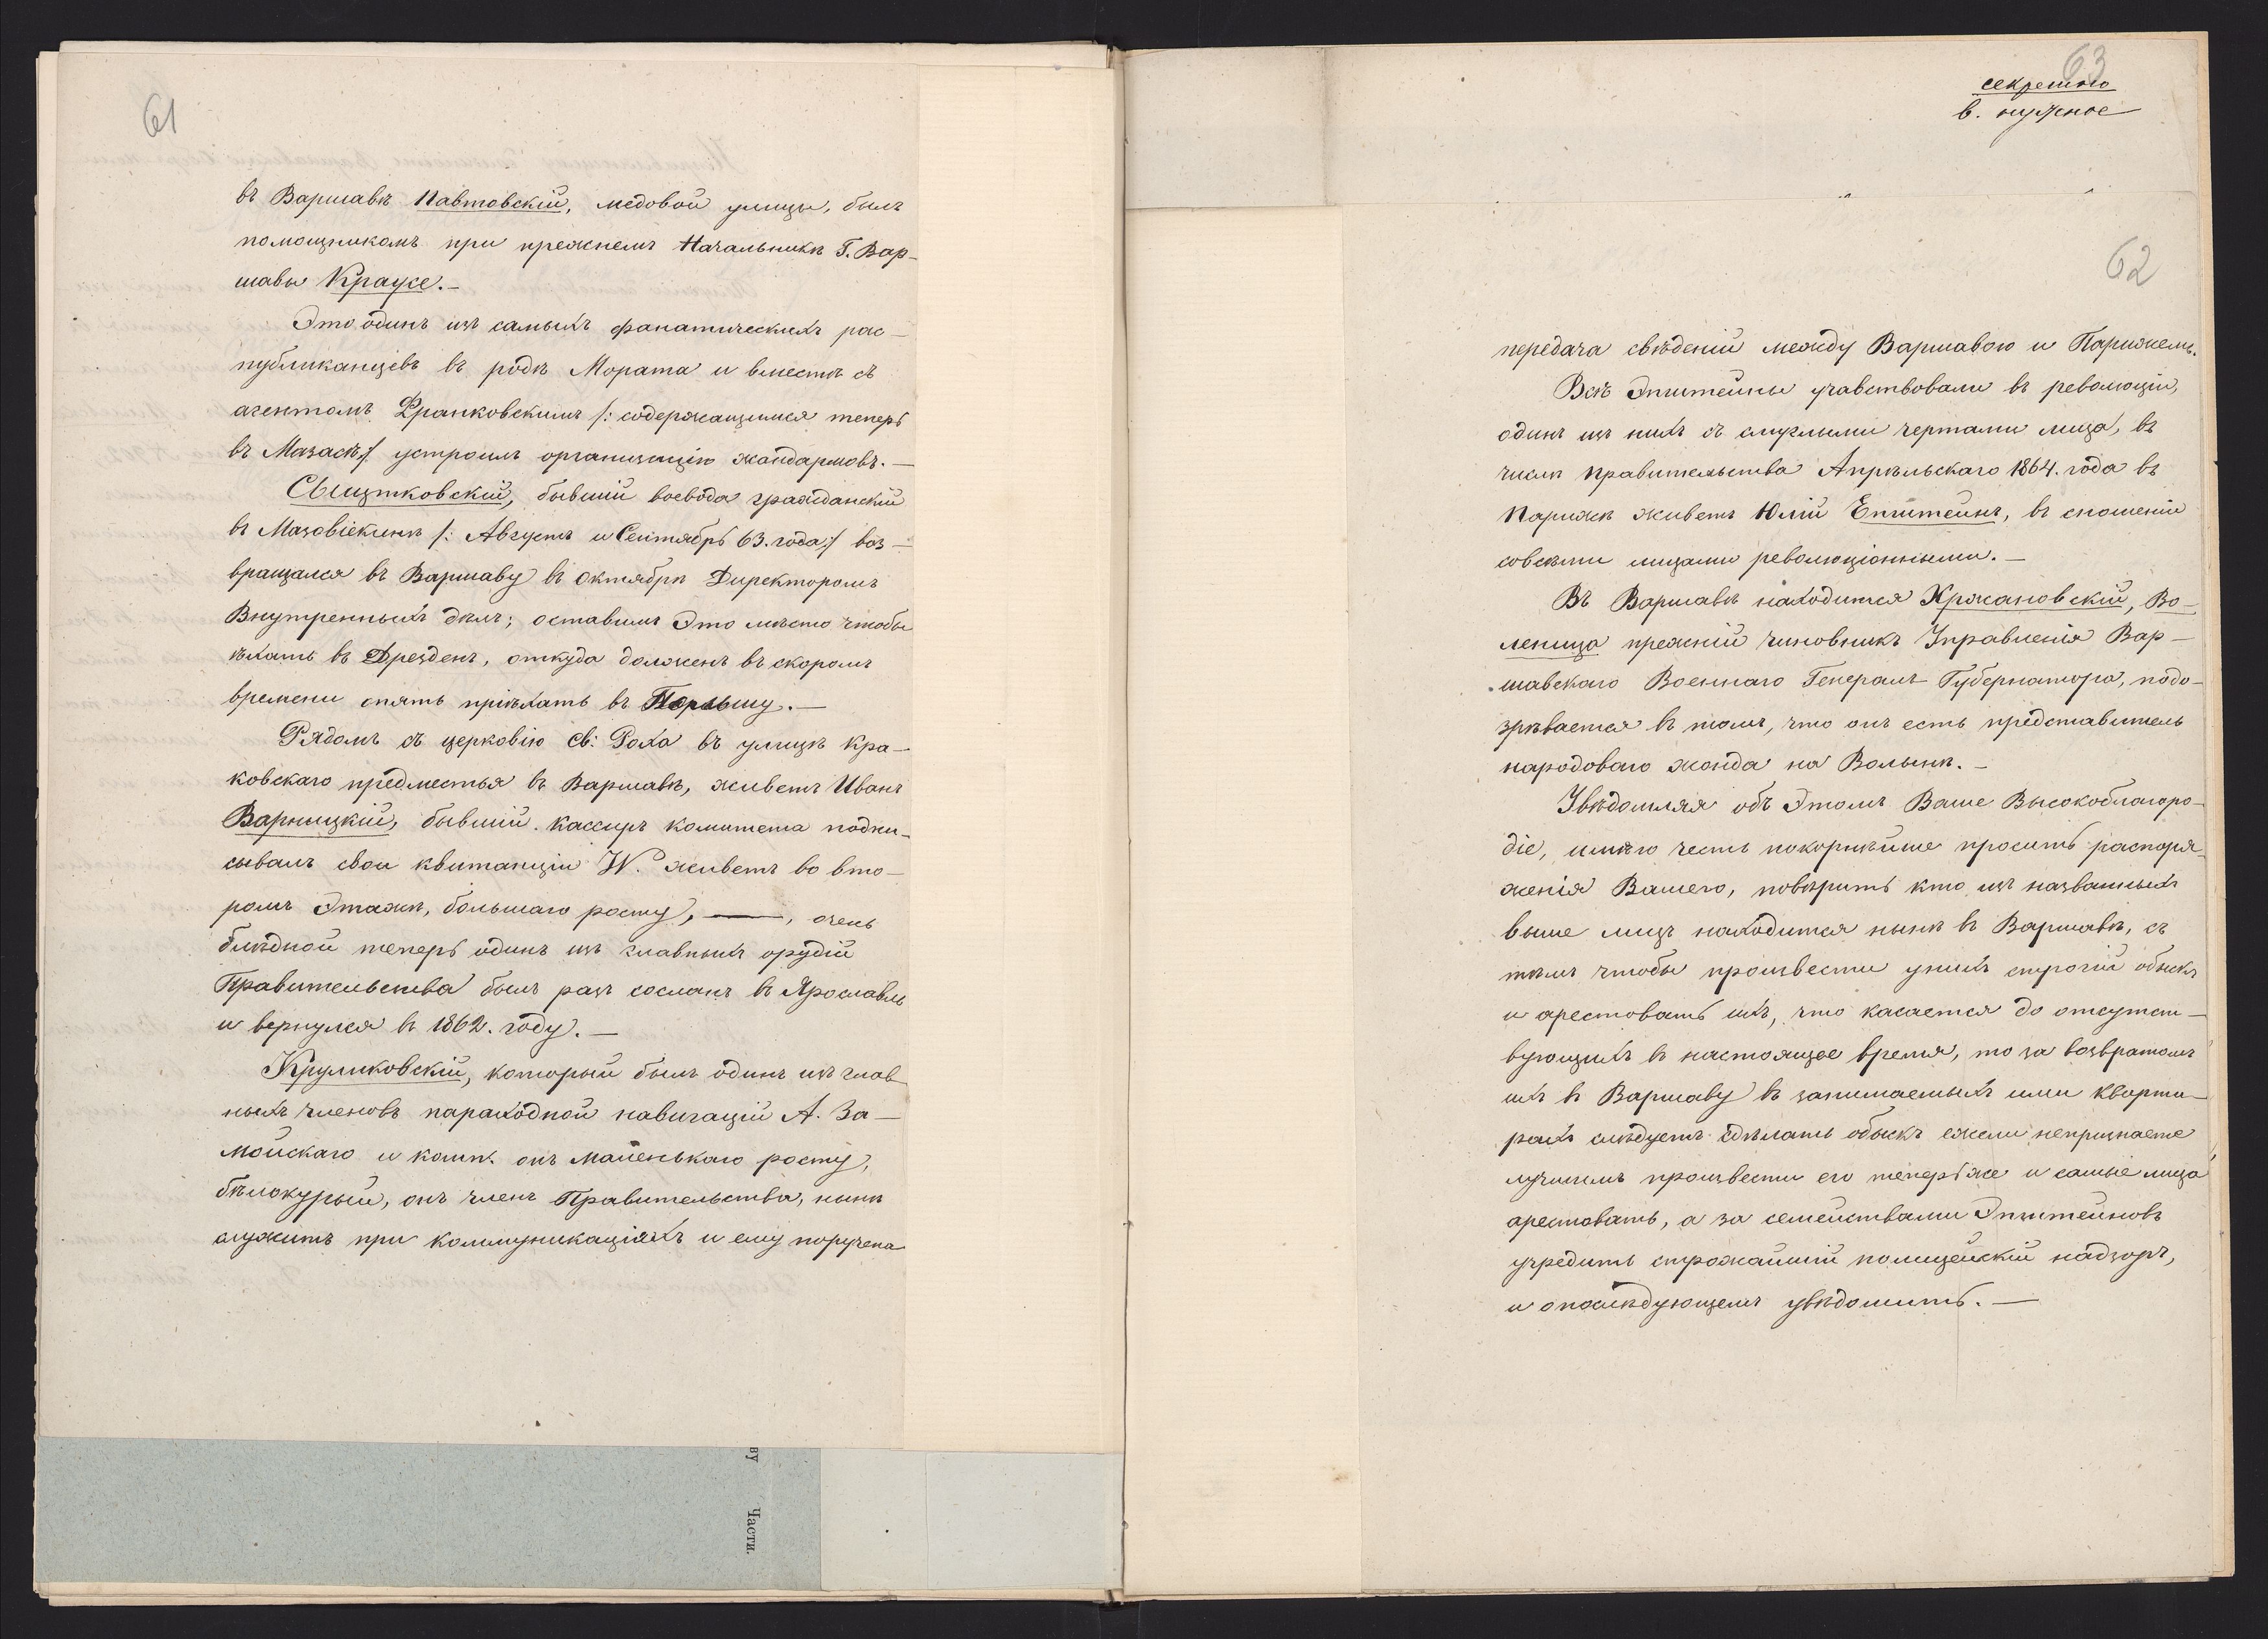 61
въ Варшавѣ Павтовскій, медовой улицы, былъ
помощникомъ при прежнемъ Начальникѣ Г. Вар-
шавы Краузе.-
Это одинъ изъ самыхъ фанатическихъ рес-
публиканцевъ въ родѣ Мората и вместѣ съ
агентомъ Франковскимъ /: содержащимся теперь
въ Мазасѣ :/ устроилъ организацію жандармовъ.-
Свищтковскій, бывшій воевода гражданскій
въ Мазовіекимъ /: Августъ и Сентябрь 63. года :/ воз-
вращался въ Варшаву въ Октябрѣ Директоромъ
Внутреннихъ дѣлъ; оставилъ это мѣсто чтобы
ѣхать въ Дрезденъ, откуда долженъ въ скоромъ
времени опять пріѣхать въ Польшу.-
Рядомъ съ церковію Св: Роха въ улицѣ Кра-
ковскаго предместья въ Варшавѣ, живетъ Иванъ
Варницкій, бывшій кассиръ комитета подпи-
сывалъ свои квитанціи W. живетъ во вто-
ромъ этажѣ, большаго росту, —, очень
блѣдной теперь одинъ изъ главныхъ орудій
Правительства былъ разъ сосланъ въ Ярославль
и вернулся въ 1862. году.-
Круликовскій, который былъ одинъ изъ глав-
ныхъ членовъ пароходной навигаціи А. За-
мойскаго и комп. онъ маленькаго росту,
бѣлокурый, онъ членъ Правительства, нынѣ
служитъ при коммуникаціяхъ и ему поручена
ву Части.
63
секретно
в. нужное
62
передача свѣденій между Варшавою и Парижемъ.
Всѣ Эпштейны учавствовали въ революціи,
одинъ изъ нихъ съ смуглыми чертами лица, въ
числѣ правительства Апрѣльскаго 1864. года въ
Парижѣ живетъ Юлій Епштейнъ, въ сношеніи
совсѣми лицами революціонными.-
Въ Варшавѣ находится Кржановскій, Во-
леница прежній чиновникъ Управленія Вар-
шавскаго Военнаго Генералъ Губернатора, подо-
зрѣвается въ томъ, что онъ есть представитель
народоваго жонда на Волынѣ.-
Увѣдомляя объ этомъ Ваше Высокоблагоро-
діе, имѣю честь покорнѣйше просить распоря-
женія Вашего, повѣрить кто изъ названныхъ
выше лицъ находится нынѣ въ Варшавѣ, съ
тѣмъ чтобы произвести унихъ строгій обыскъ
и арестовать ихъ, что касается до отсутст-
вующихъ въ настоящее время, то за возвратомъ
ихъ въ Варшаву въ занимаемыхъ ими кварти-
рахъ слѣдуетъ сдѣлать обыскъ ежели непризнаете
лучшимъ произвести его теперь же и самые лица
арестовать, а за семействами Эпштейновъ
учредить строжайшій полицейскій надзоръ,
и опослѣдующемъ увѣдомить.-